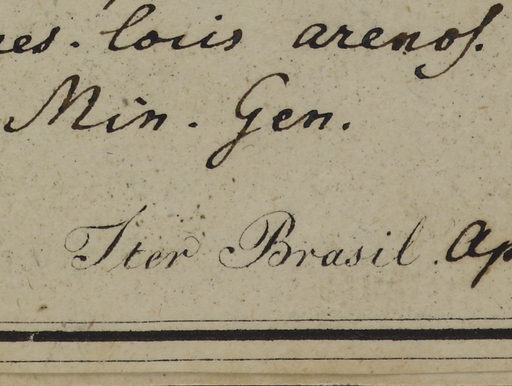 es. locis arenos.
Min. Gen.
Iter Brasil. Ap